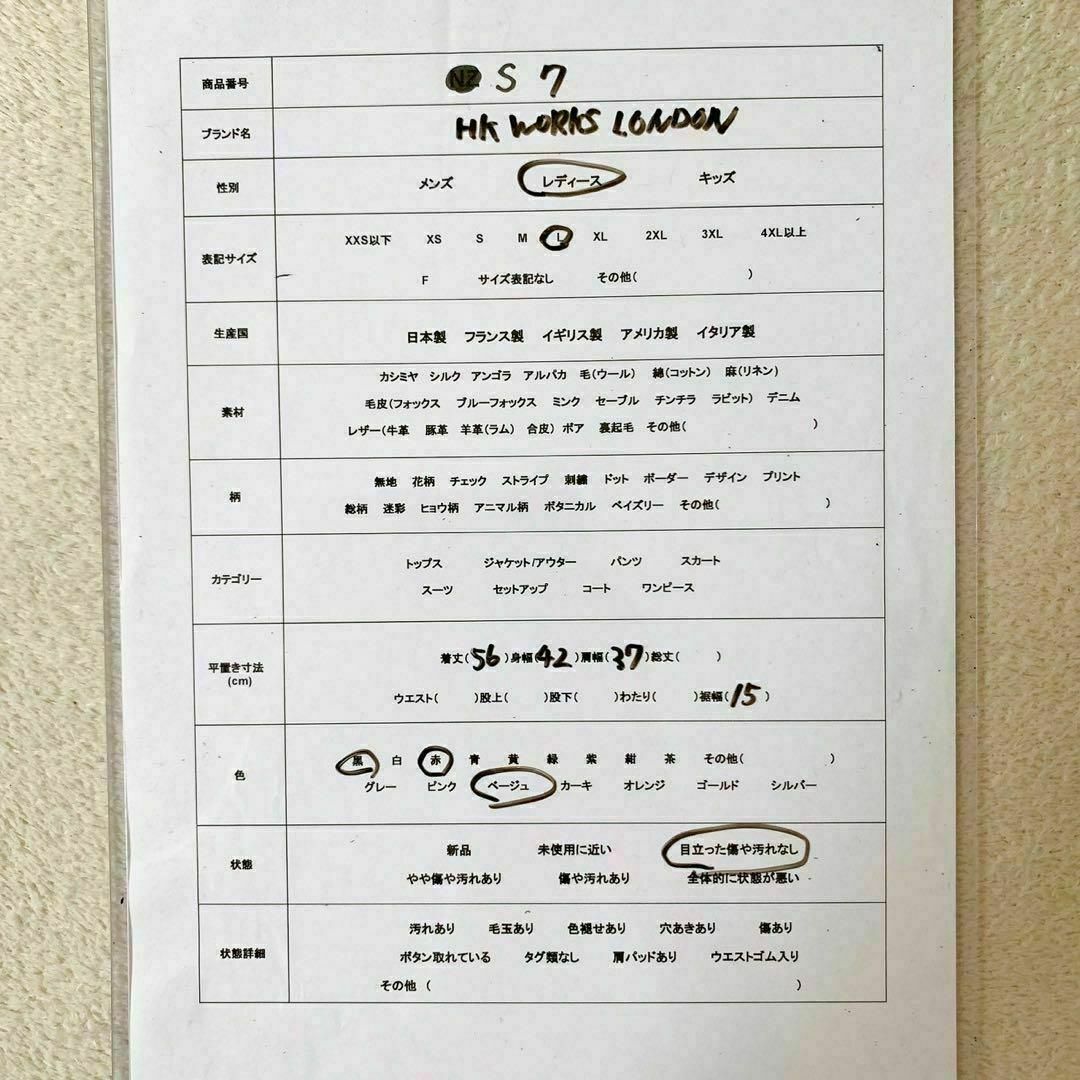 商品番号 NZ S 7
ブランド名 HK WORKS LONDON
性別 メンズ レディース キッズ
表記サイズ XXS以下 XS S M L XL 2XL 3XL 4XL以上
F サイズ表記なし その他( )
生産国 日本製 フランス製 イギリス製 アメリカ製 イタリア製
素材 カシミヤ シルク アンゴラ アルパカ 毛(ウール) 綿(コットン) 麻(リネン)
毛皮(フォックス ブルーフォックス ミンク セーブル チンチラ ラビット) デニム
レザー(牛革 豚革 羊革(ラム) 合皮) ボア 裏起毛 その他( )
柄 無地 花柄 チェック ストライプ 刺繍 ドット ボーダー デザイン プリント
総柄 迷彩 ヒョウ柄 アニマル柄 ボタニカル ペイズリー その他( )
カテゴリー トップス ジャケット/アウター パンツ スカート
スーツ セットアップ コート ワンピース
平置き寸法 (cm) 着丈(56)身幅(42)肩幅(37)総丈( )
ウエスト( )股上( )股下( )わたり( )裾幅(15)
色 黒 白 赤 青 黄 緑 紫 紺 茶 その他( )
グレー ピンク ベージュ カーキ オレンジ ゴールド シルバー
状態 新品 未使用に近い 目立った傷や汚れなし
やや傷や汚れあり 傷や汚れあり 全体的に状態が悪い
状態詳細 汚れあり 毛玉あり 色褪せあり 穴あきあり 傷あり
ボタン取れている タグ類なし 肩パッドあり ウエストゴム入り
その他 ( )